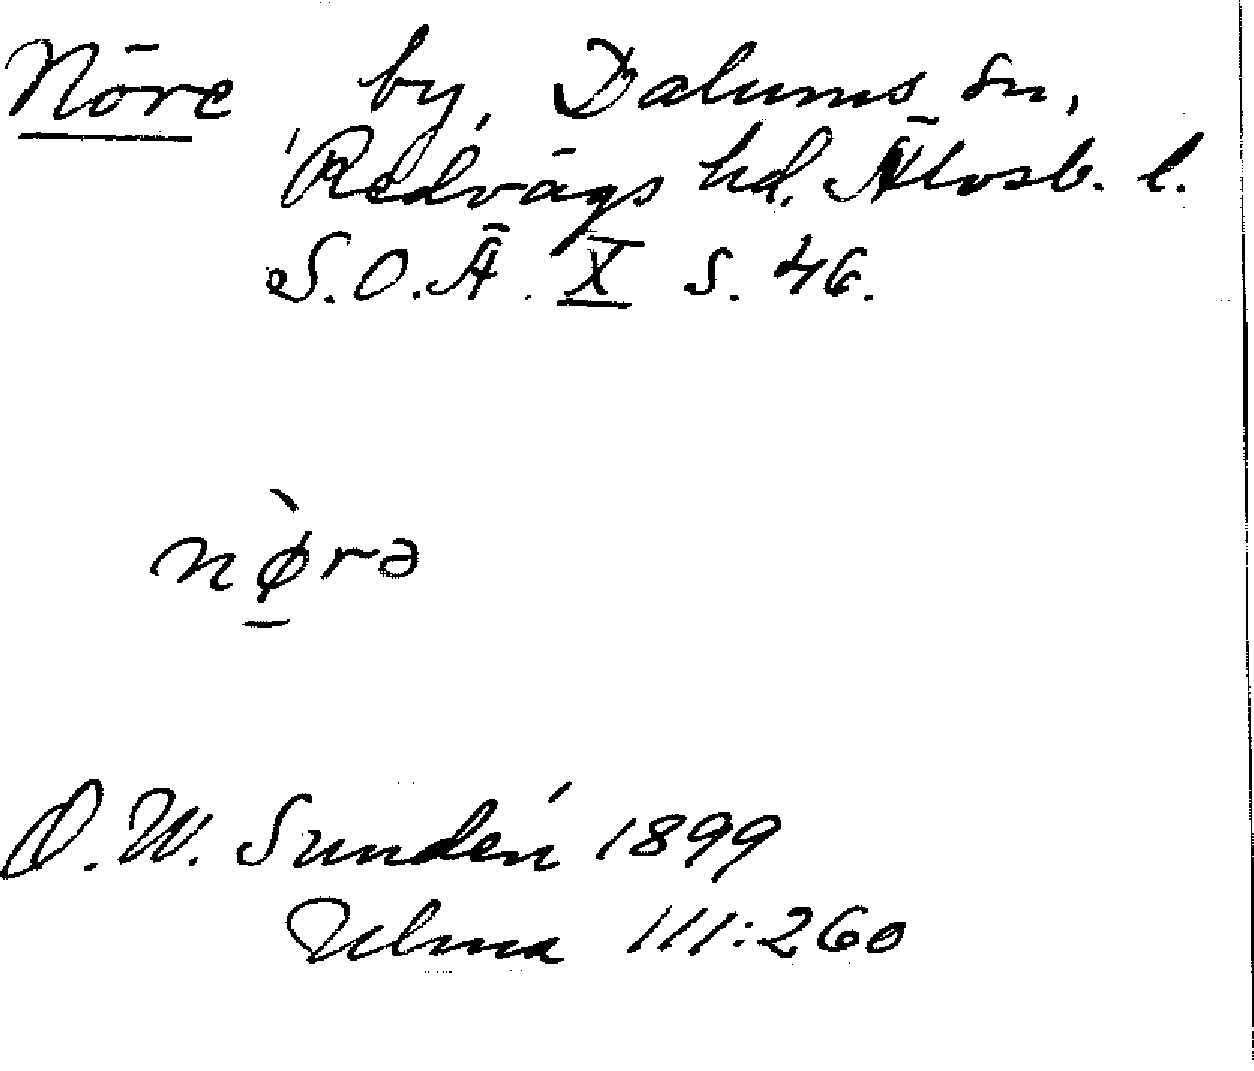 Nöre by, Dalums sn,
Redvägs hd. Älvsb. l.
S.O.Ä. X s. 46.
nø̀rə
D.W. Sundén 1899
Ulma 111:260